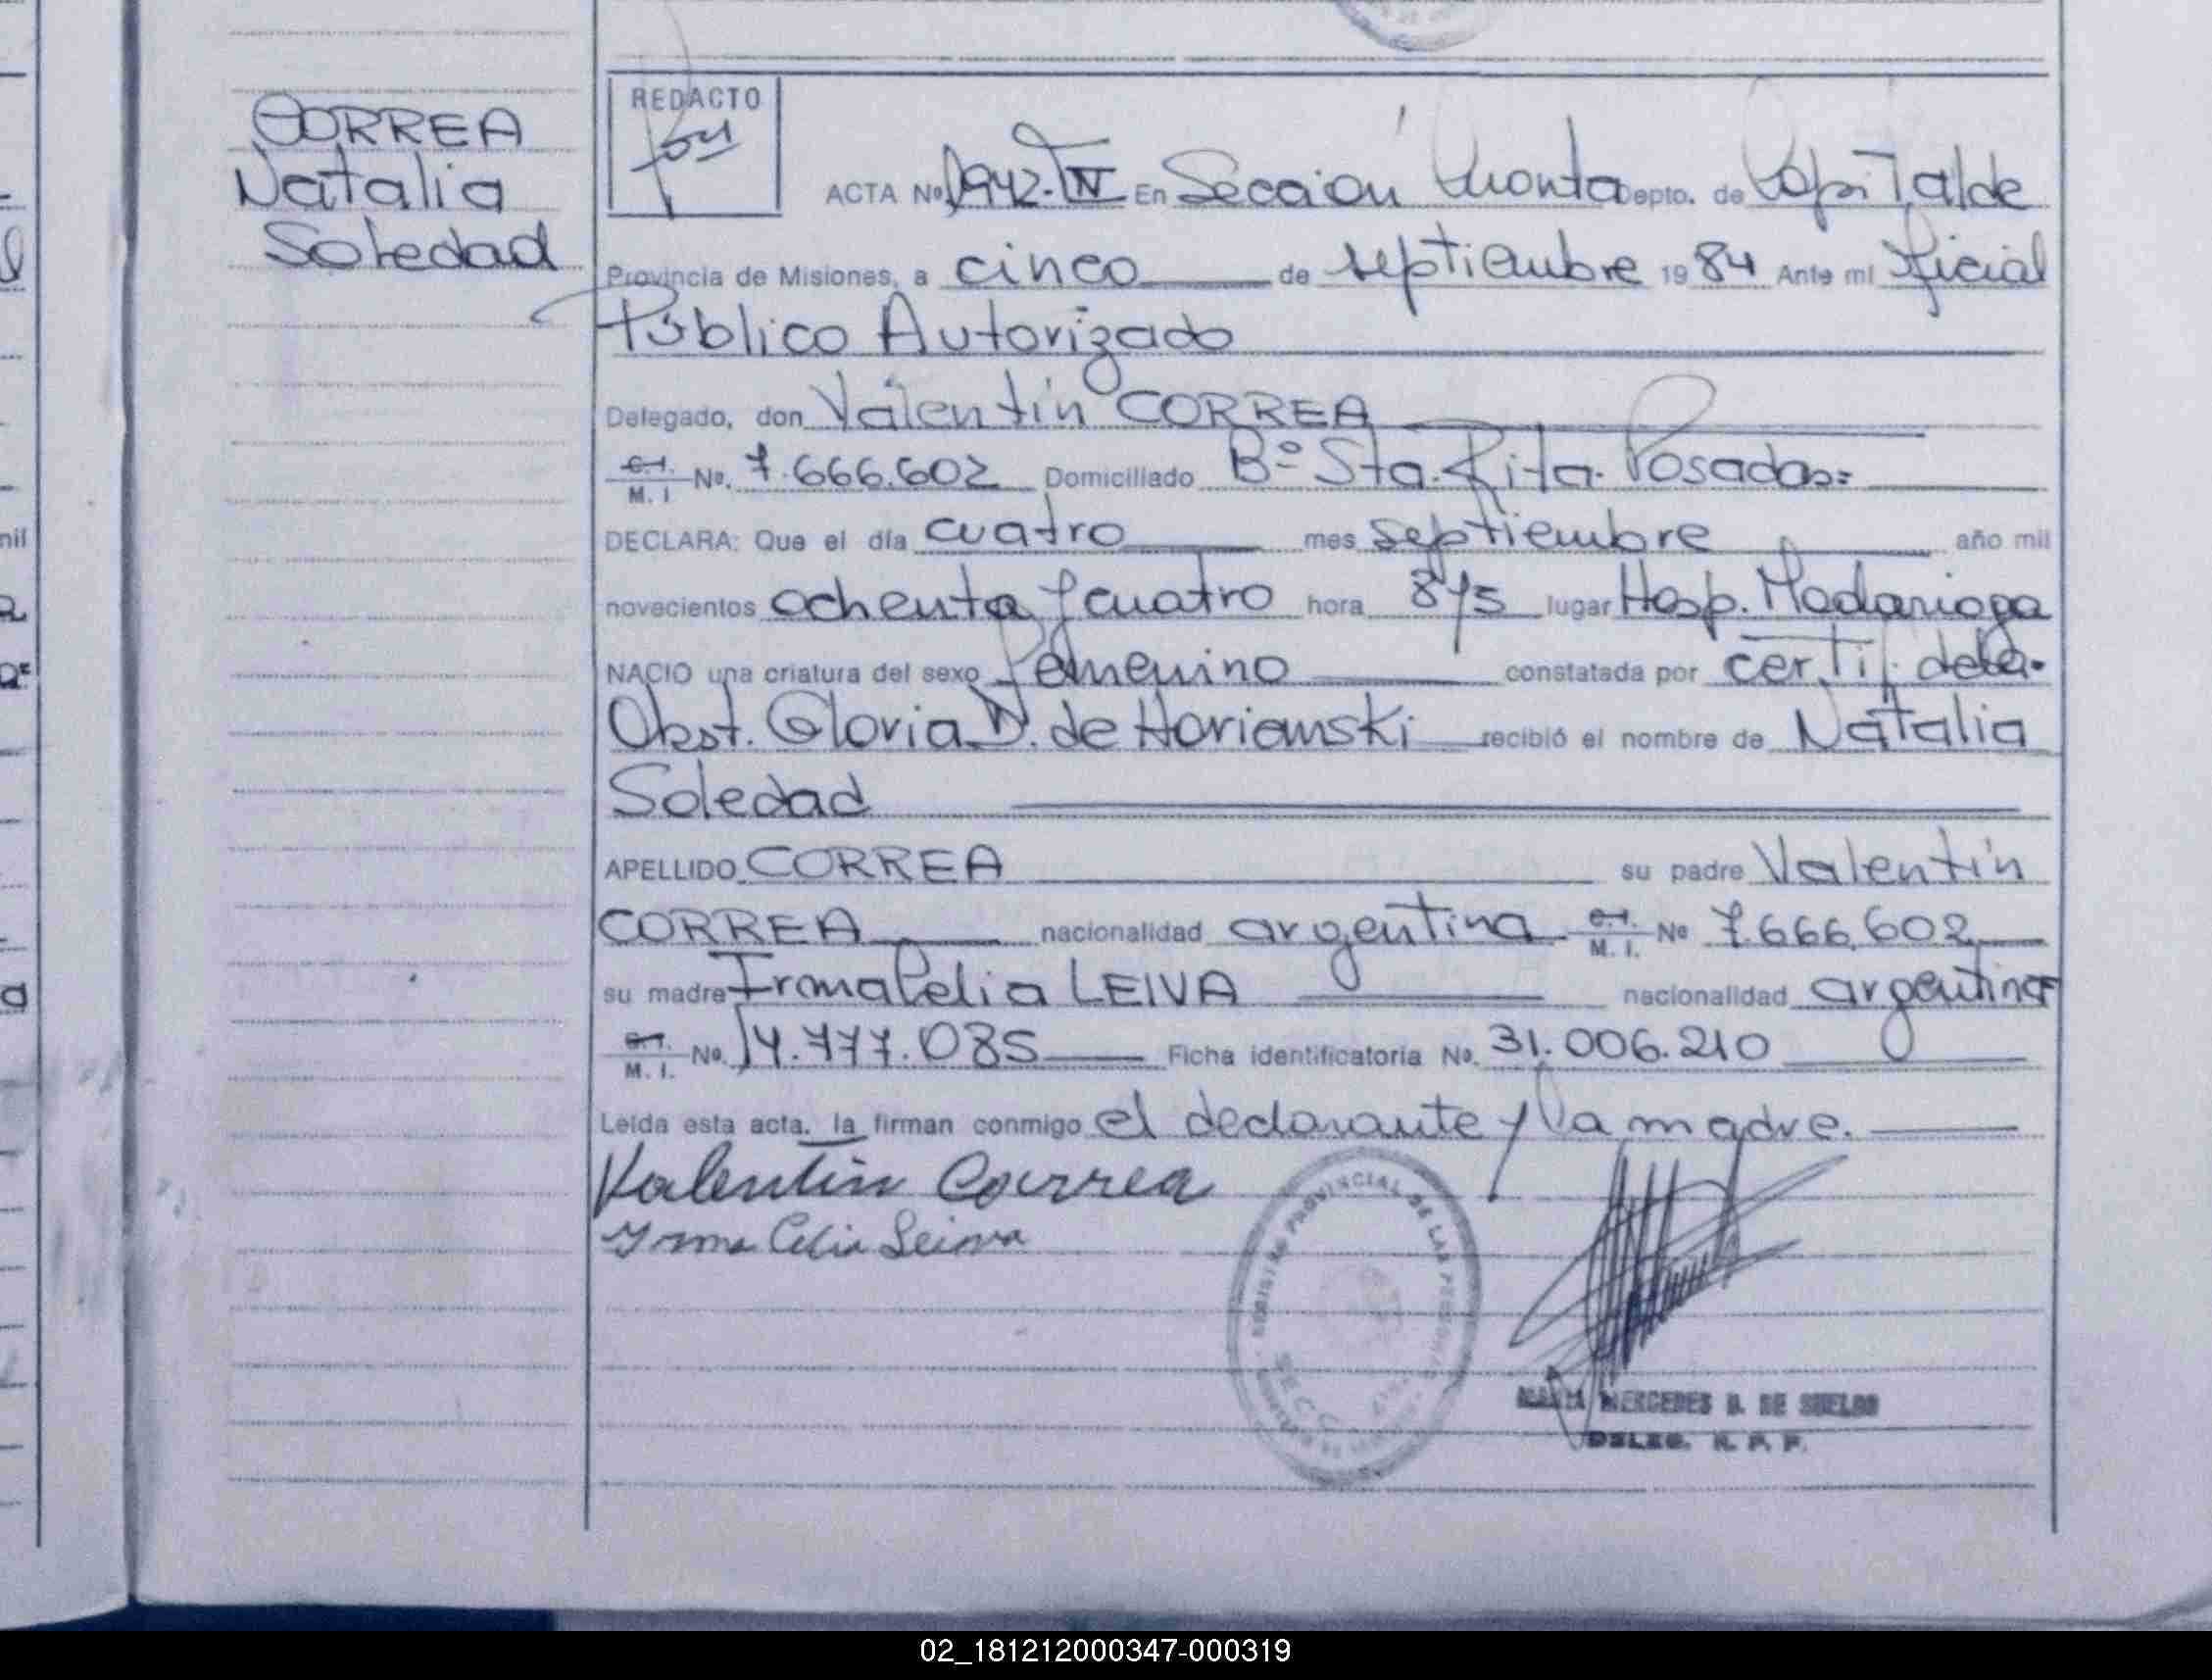 CORREA
Natalia
Soledad
REDACTO
ACTA Nº 1942-IV En Sección Cuarta Depto. de Capital de
Provincia de Misiones, a cinco de septiembre 1984 Ante mi Oficial
Público Autorizado
Delegado, don Valentín CORREA
C.I. M. I No. 7.666.602 Domiciliado Bº Sta. Rita. Posadas=
DECLARA: Que el día cuatro mes septiembre año mil
novecientos ochenta y cuatro hora lugar Hosp. Madariaga
NACIO una criatura del sexo femenino constatada por certif. de la
Obst. Gloria de recibió el nombre de Natalia
Soledad
APELLIDO CORREA su padre Valentín
CORREA nacionalidad argentina C.I. M. I. Nº 7.666.602
su madre Irma Celia LEIVA nacionalidad argentina
C.I. M. I. No. 14.777.085 Ficha identificatoria No. 31.006.210
Leída esta acta, la firman conmigo el declarante y la madre.
Valentin Correa
Irma Celia Leiva
REGISTRO PROVINCIAL DE LAS PERSONAS
SECC.
MARIA MERCEDES D. DE SUELDO
DELEG. R. P. P.
nil
a
02_181212000347-000319